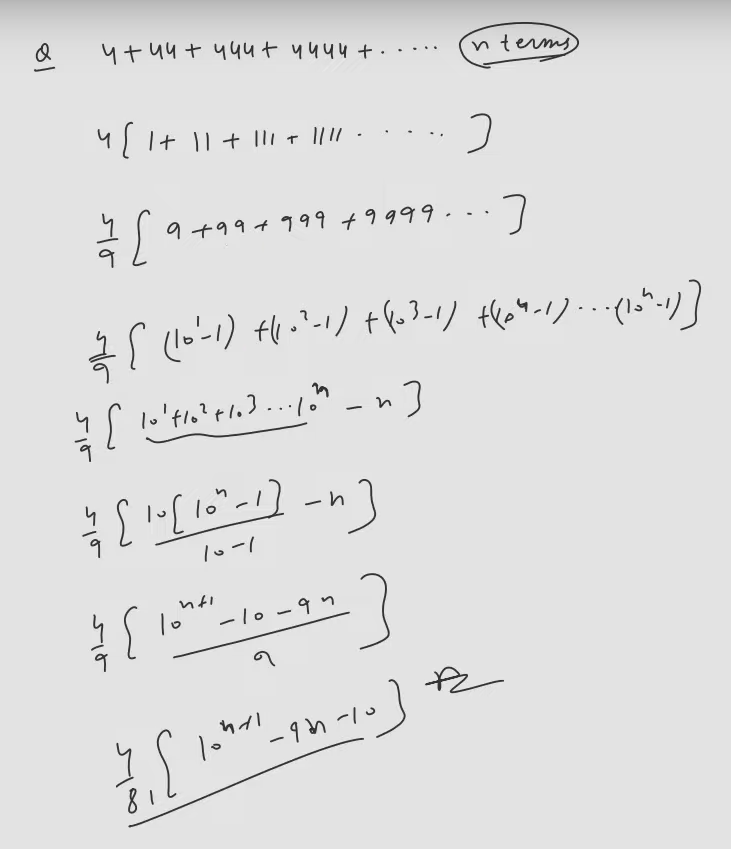 Q 4+44+444+4444+..... n terms
4[1+11+111+1111.....]
4/9[9+99+999+9999...]
4/9[(10¹-1)+(10²-1)+(10³-1)+(10⁴-1)...(10ⁿ-1)]
4/9[10¹+10²+10³...10ⁿ-n]
4/9[10[10ⁿ-1]/10-1-n]
4/9[10ⁿ⁺¹-10-9n/9]
4/81[10ⁿ⁺¹-9n-10]